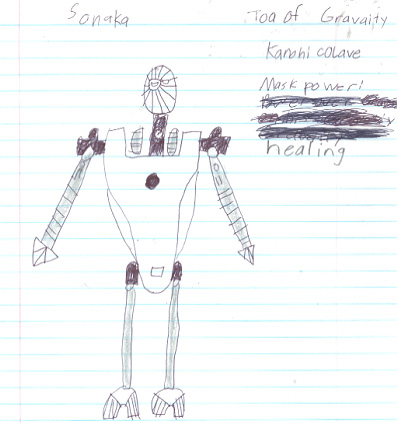 Sonaka
Toa of Gravaity
Kanohi colave
Mask power:
healing